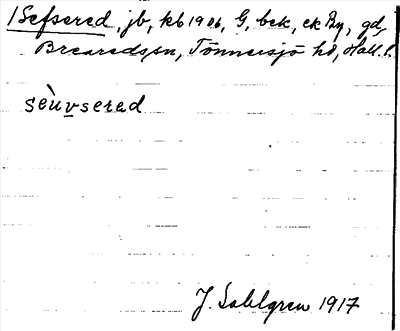 1 Sefsered, jb, kb 1926, G, bek, ek By, gd,
Brearedssn, Tönnersjö hd, Hall. l.
sèuvserad
J. Sahlgren 1917